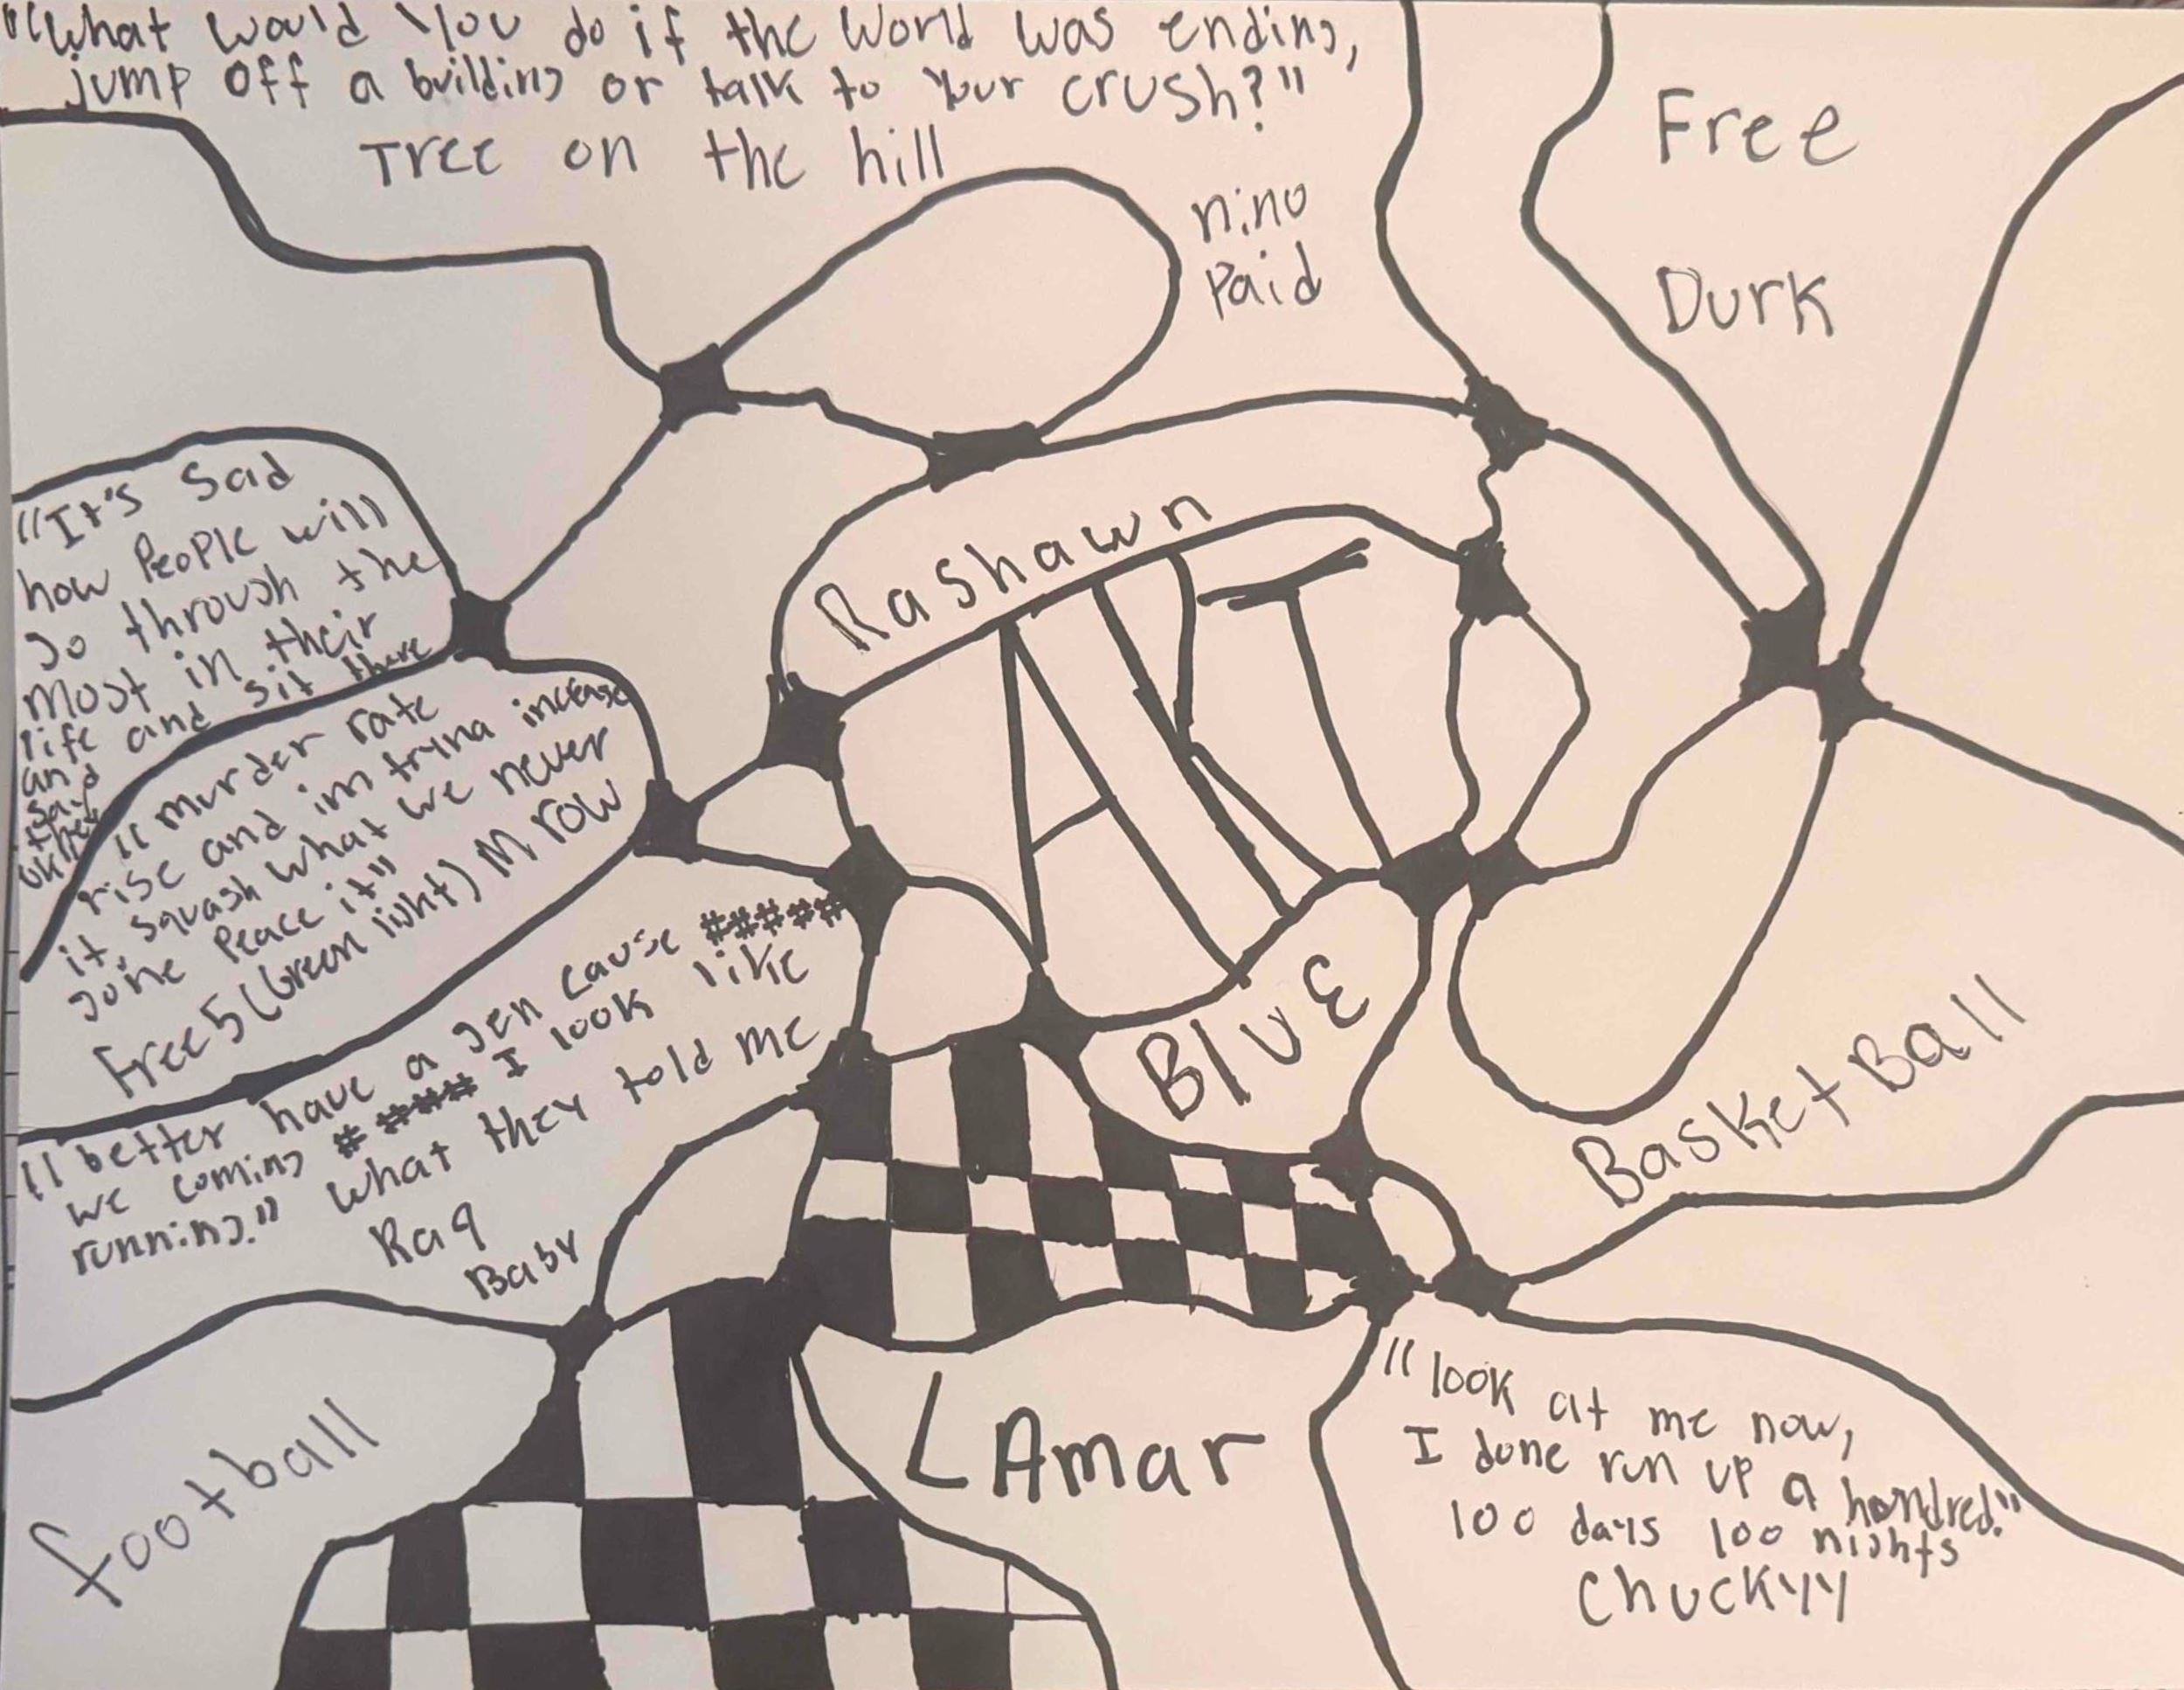 "What would You do if the World was ending,
jump off a building or talk to Your crush?"
Tree on the hill
nino
Paid
Free
Durk
"It's Sad
how People will
go through the
most in their
life and sit there
and
say
they
ok"
"murder rate
rise and im tryna increase
it, squash what we never
gone Peace it"
Free 5 (Green light) M row
Rashawn
ART
BlUE
"better have a gen cause #####
we coming # #### I look like
running." what they told me
Raq
Baby
BasketBall
football
LAmar
"look at me now,
I done run up a hondred."
100 days 100 nights
ChuckYY